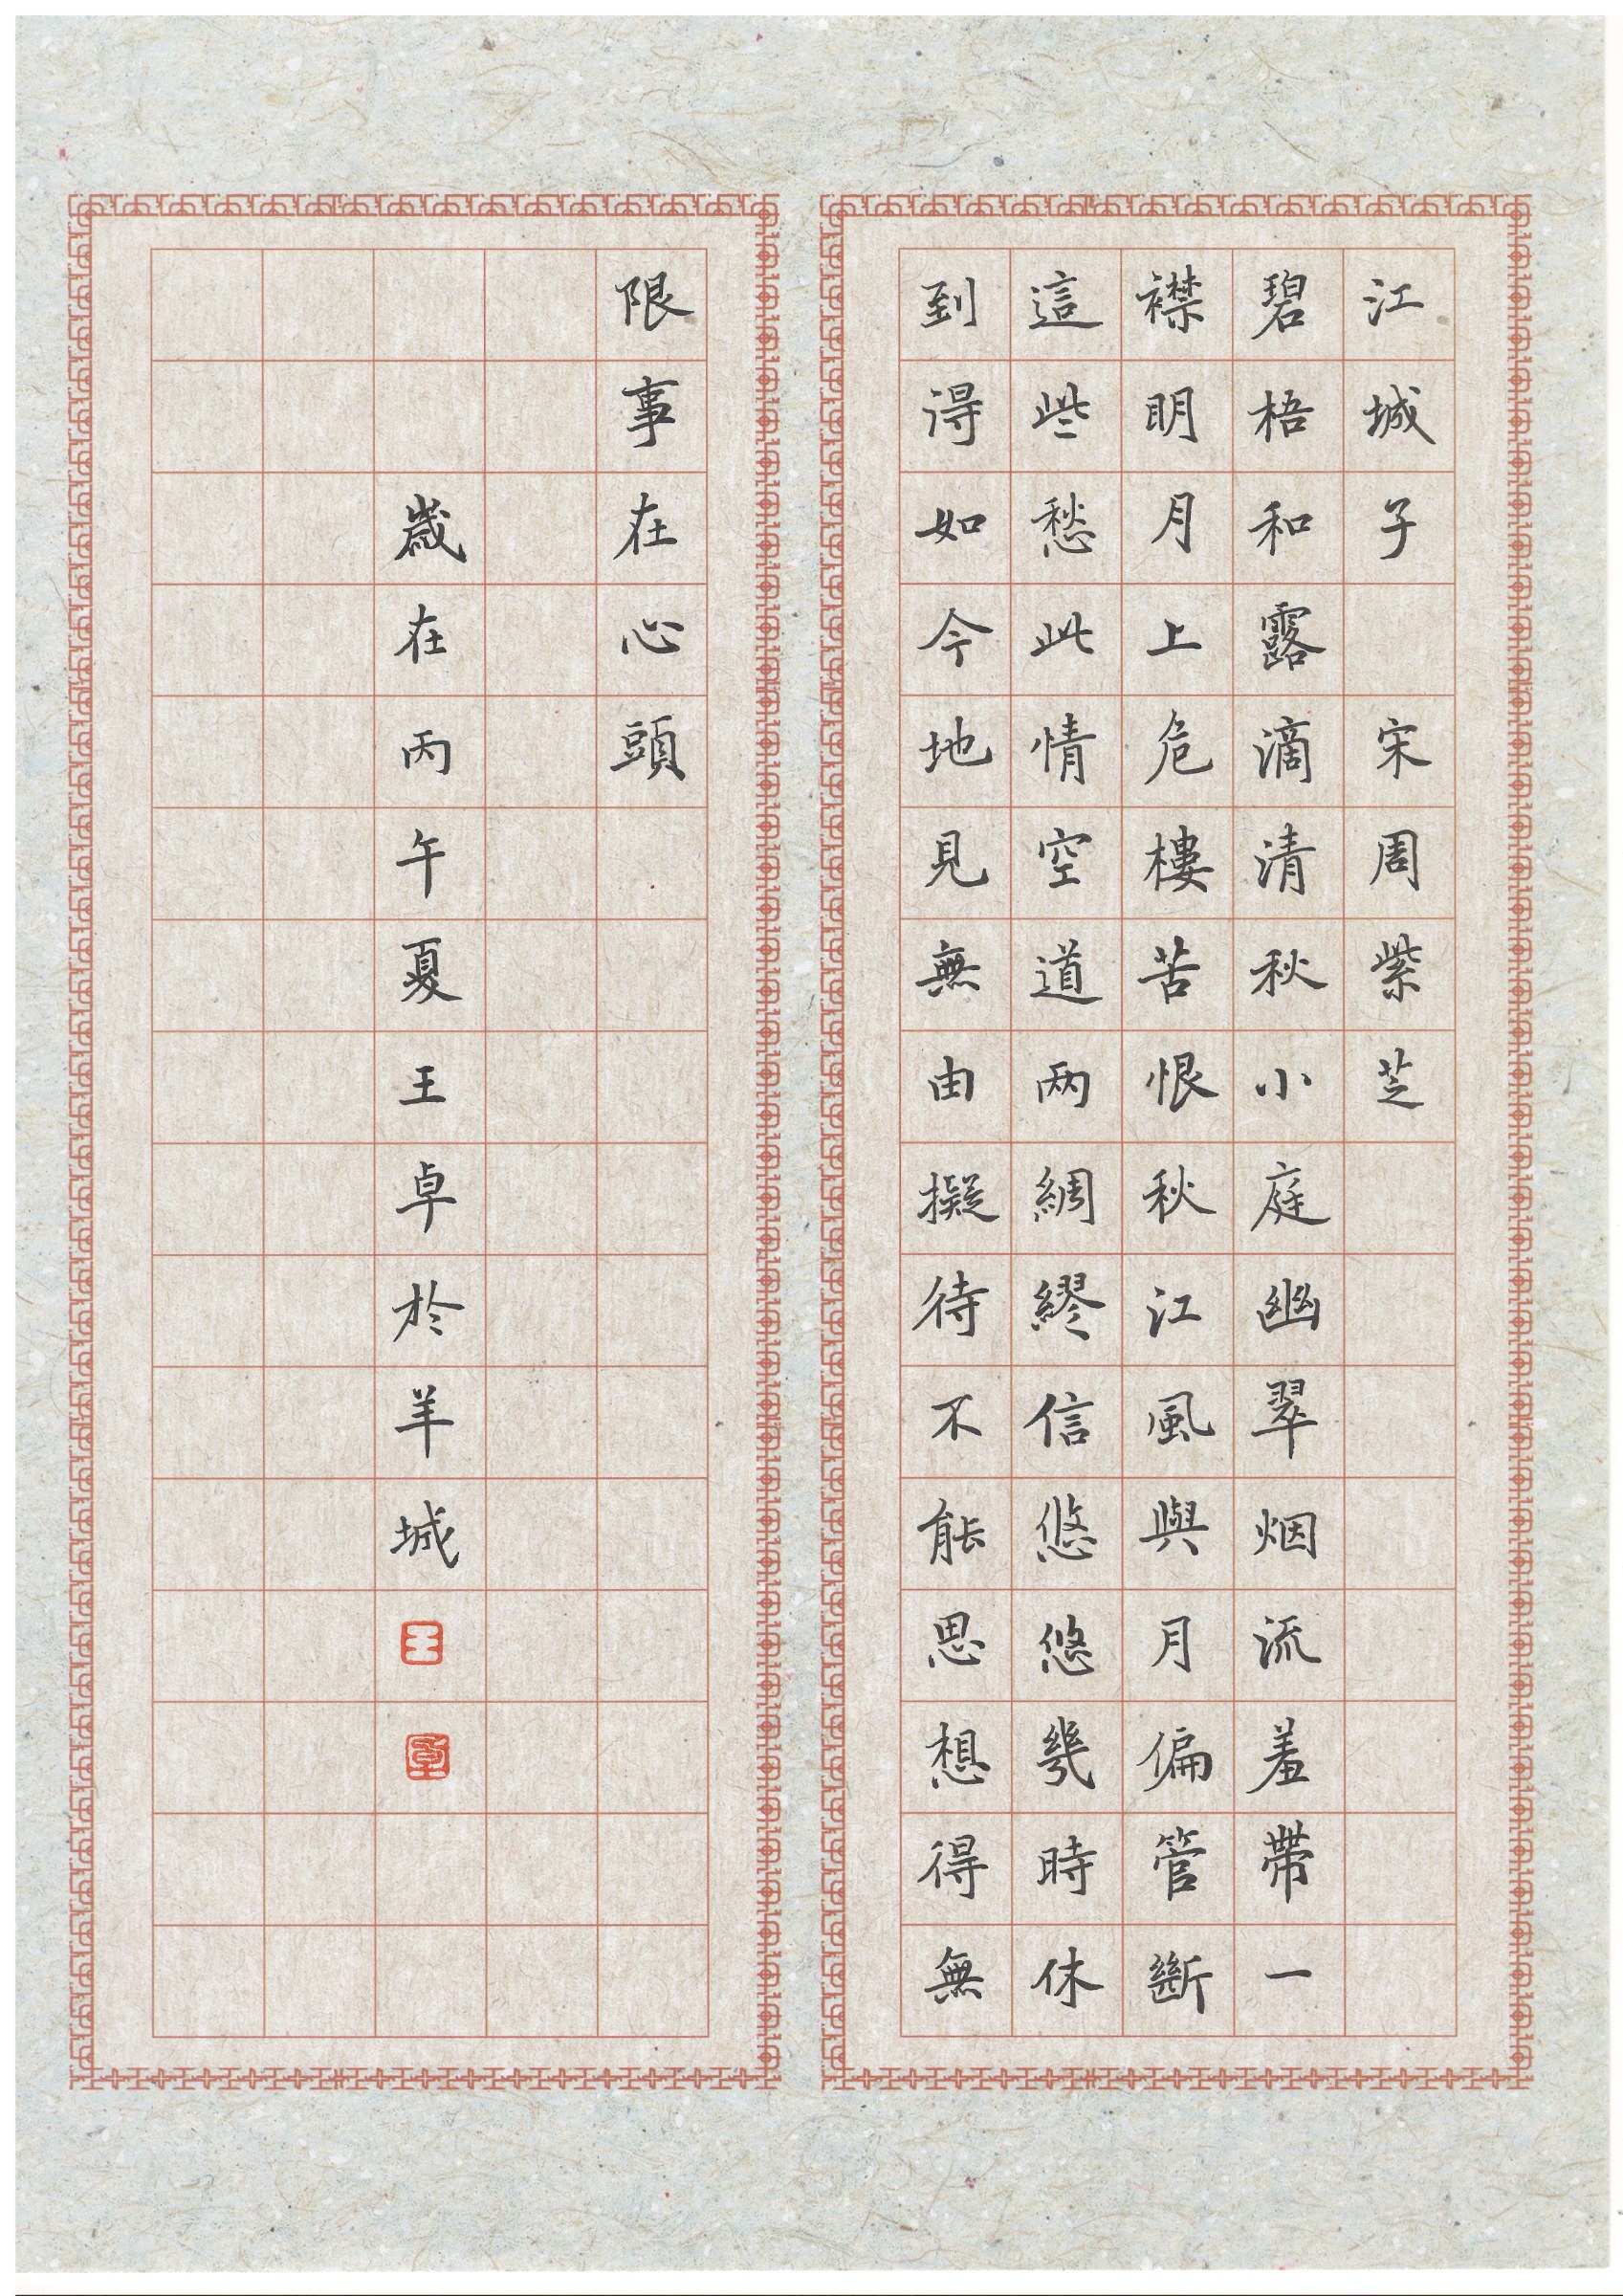 江城子 宋周紫芝
碧梧和露滴清秋小庭幽翠烟流羞帶一
襟明月上危樓苦恨秋江風與月偏管斷
這些愁此情空道兩綢繆信悠悠幾時休
到得如今地見無由擬待不能思想得無
限事在心頭
歲在丙午夏王卓於羊城
王
卓